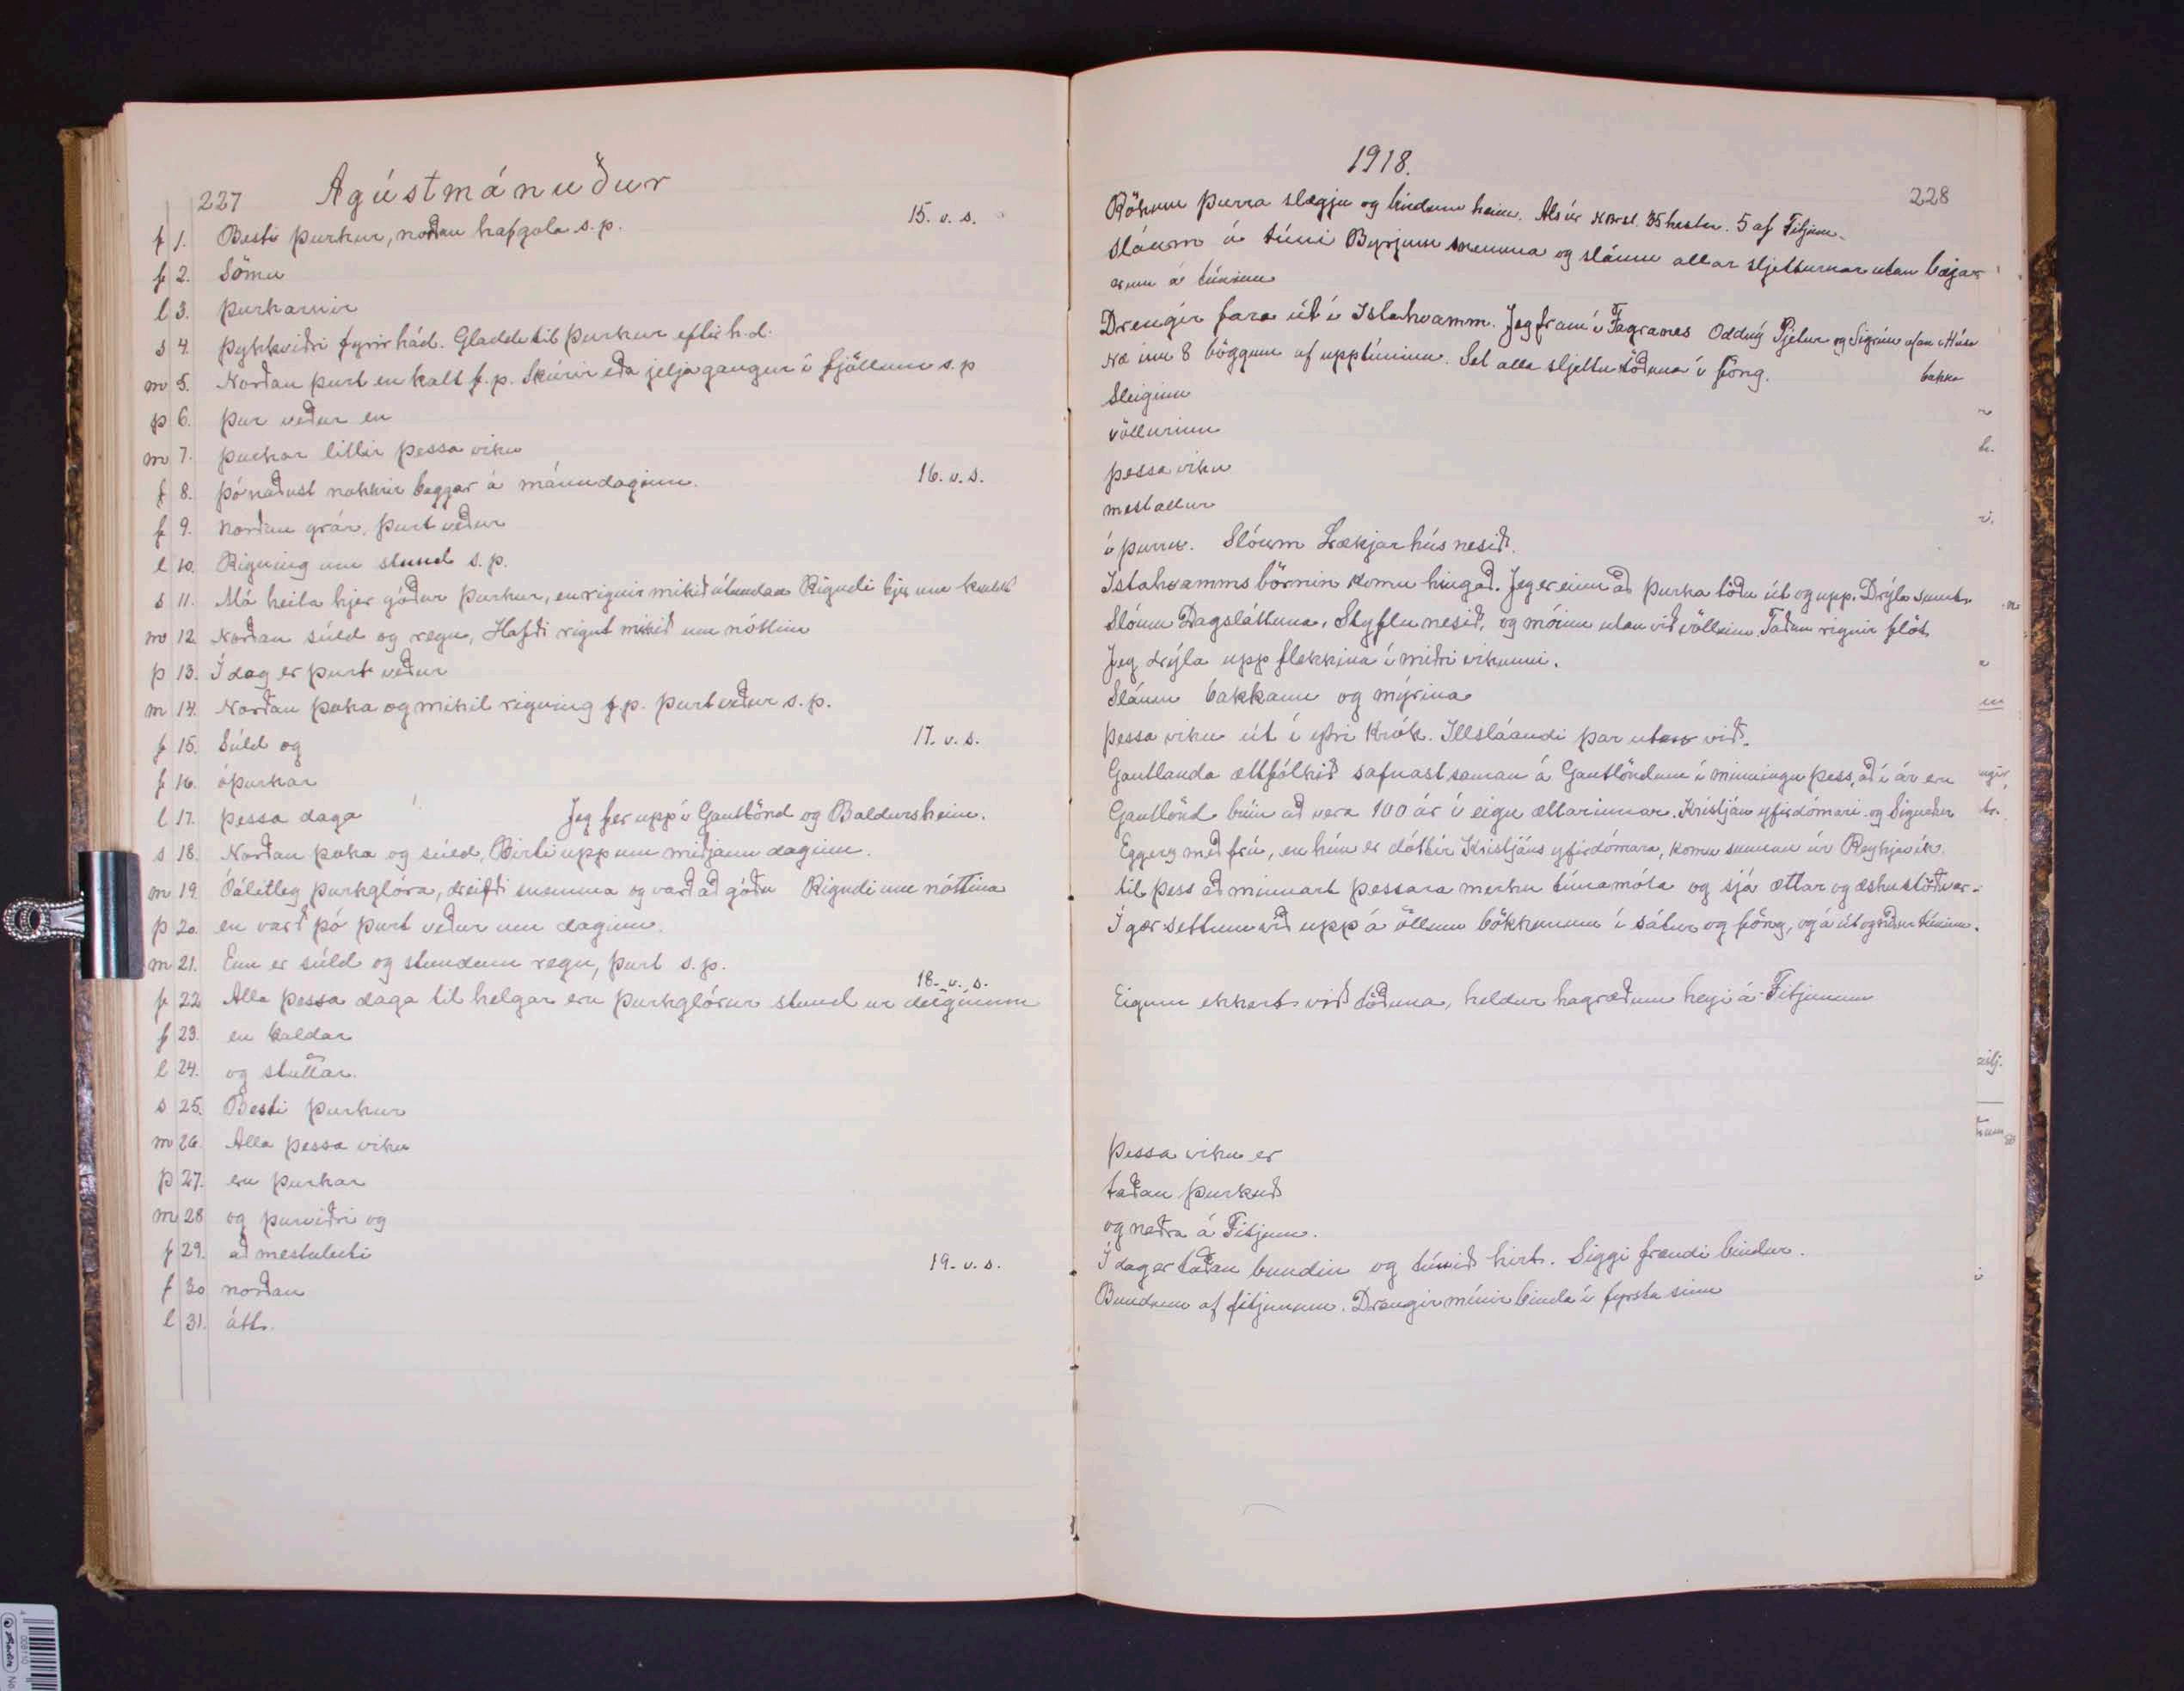 227 Agústmánuður
f 1. Besti þurkur, norðan hafgola s.p. 15. v. s.
f 2. Sömu
l 3. þurkarnir
s 4. þykkviðri fyrir hád. Gladdi til þurkur eftir h.d.
m 5. Norðan þurt en kalt f.p. Skúrir eða jeljagangur í fjöllum s.p
þ 6. þur veður en
m 7. þurkar litlir þessa viku
f 8. þó náðust nokkrir baggar á mánudaginn. 16. v. s.
f 9. Norðan grár, þurt veður
l 10. Rigning um stund s.p.
s 11. Má heita hjer góður þurkur, en rignir mikið útundan Rigndi hjer um kvöld
m 12 Norðan súld og regn, Hafði rignt mikið um nóttina
þ 13. Í dag er þurt veður
m 14. Norðan þoka og mikil rigning f.p. þurt veður s.p.
f 15. Súld og 17. v. s.
f 16. óþurkar
l 17. þessa daga Jeg fer upp í Gautlönd og Baldursheim.
s 18. Norðan þoka og súld, Birti upp um miðjann daginn.
m 19. Óálitleg þurkglóra, dreifði snemma og varð að góðu Rigndi um nóttina
þ 20. en varð þó þurt veður um daginn.
m 21. Enn er súld og stundum regn, þurt s.p.
18. v. s.
f 22 Alla þessa daga til helgar eru þurkglórur stund úr deginum
f 23. en kaldar
l 24. og stuttar.
s 25. Besti þurkur
m 26. Alla þessa viku
þ 27. eru þurkar
m 28 og þurviðri og
f 29. að mestuleiti 19. v. s.
f 30 norðan
l 31. átt.
1918.
228
Rökum þurra slægju og bindum heim. Als úr 35 hestar. 5 af Fitjum.
Sláum á túni Byrjum snemma og sláum allar sljetturnar utan bæjar
á túninu
Drengir fara út í Istahvamm. Jeg fram í Fagranes Oddný Pjetur og Sigrún utan Húsa
bakka
Næ inn 8 böggum af upptúninu. Set alla sljettu töðuna í föng.
Sleiginn
völlurinn
þessa viku
mestallur
í þurru. Sláum Lækjarhúsnesið.
Istahvamms börnin komu hingað. Jeg er einn að þurka töðu út og upp. Drýla sumt.
Sláum Dagsláttuna, Styflunesið, og móinn utan við völlinn Taðan rignir flöt
Jeg drýla upp flekkina í miðri vikunni.
Sláum bakkann og mýrina
þessa viku út í ytri Krók. Illsláandi þar utan við.
Gautlanda ættfólkið safnast saman á Gautlöndum í minningu þess, að í ár eru
Gautlönd búin að vera 100 ár í eigu ættarinnar. Kristján yfirdómari og Sigurður
Eggerz með frú, en hún er dóttir Kristjáns yfirdómara, komu sunnan úr Reykjavík
til þess að minnast þessara merku tímamóta og sjá ættar og æskustöðvar.
Í gær settum við upp á öllum bökkunum í sátur og föng, og á út og suður túninu.
Eigum ekkert við töðuna, heldur hagræðum heyi á Fitjunum
þessa viku er
taðan þurkuð
og neðra á Fitjum.
Í dag er taðan bundin og túnið hirt. Siggi frændi bindur.
Bundum af fitjunum. Drengir mínir binda í fyrsta sinn